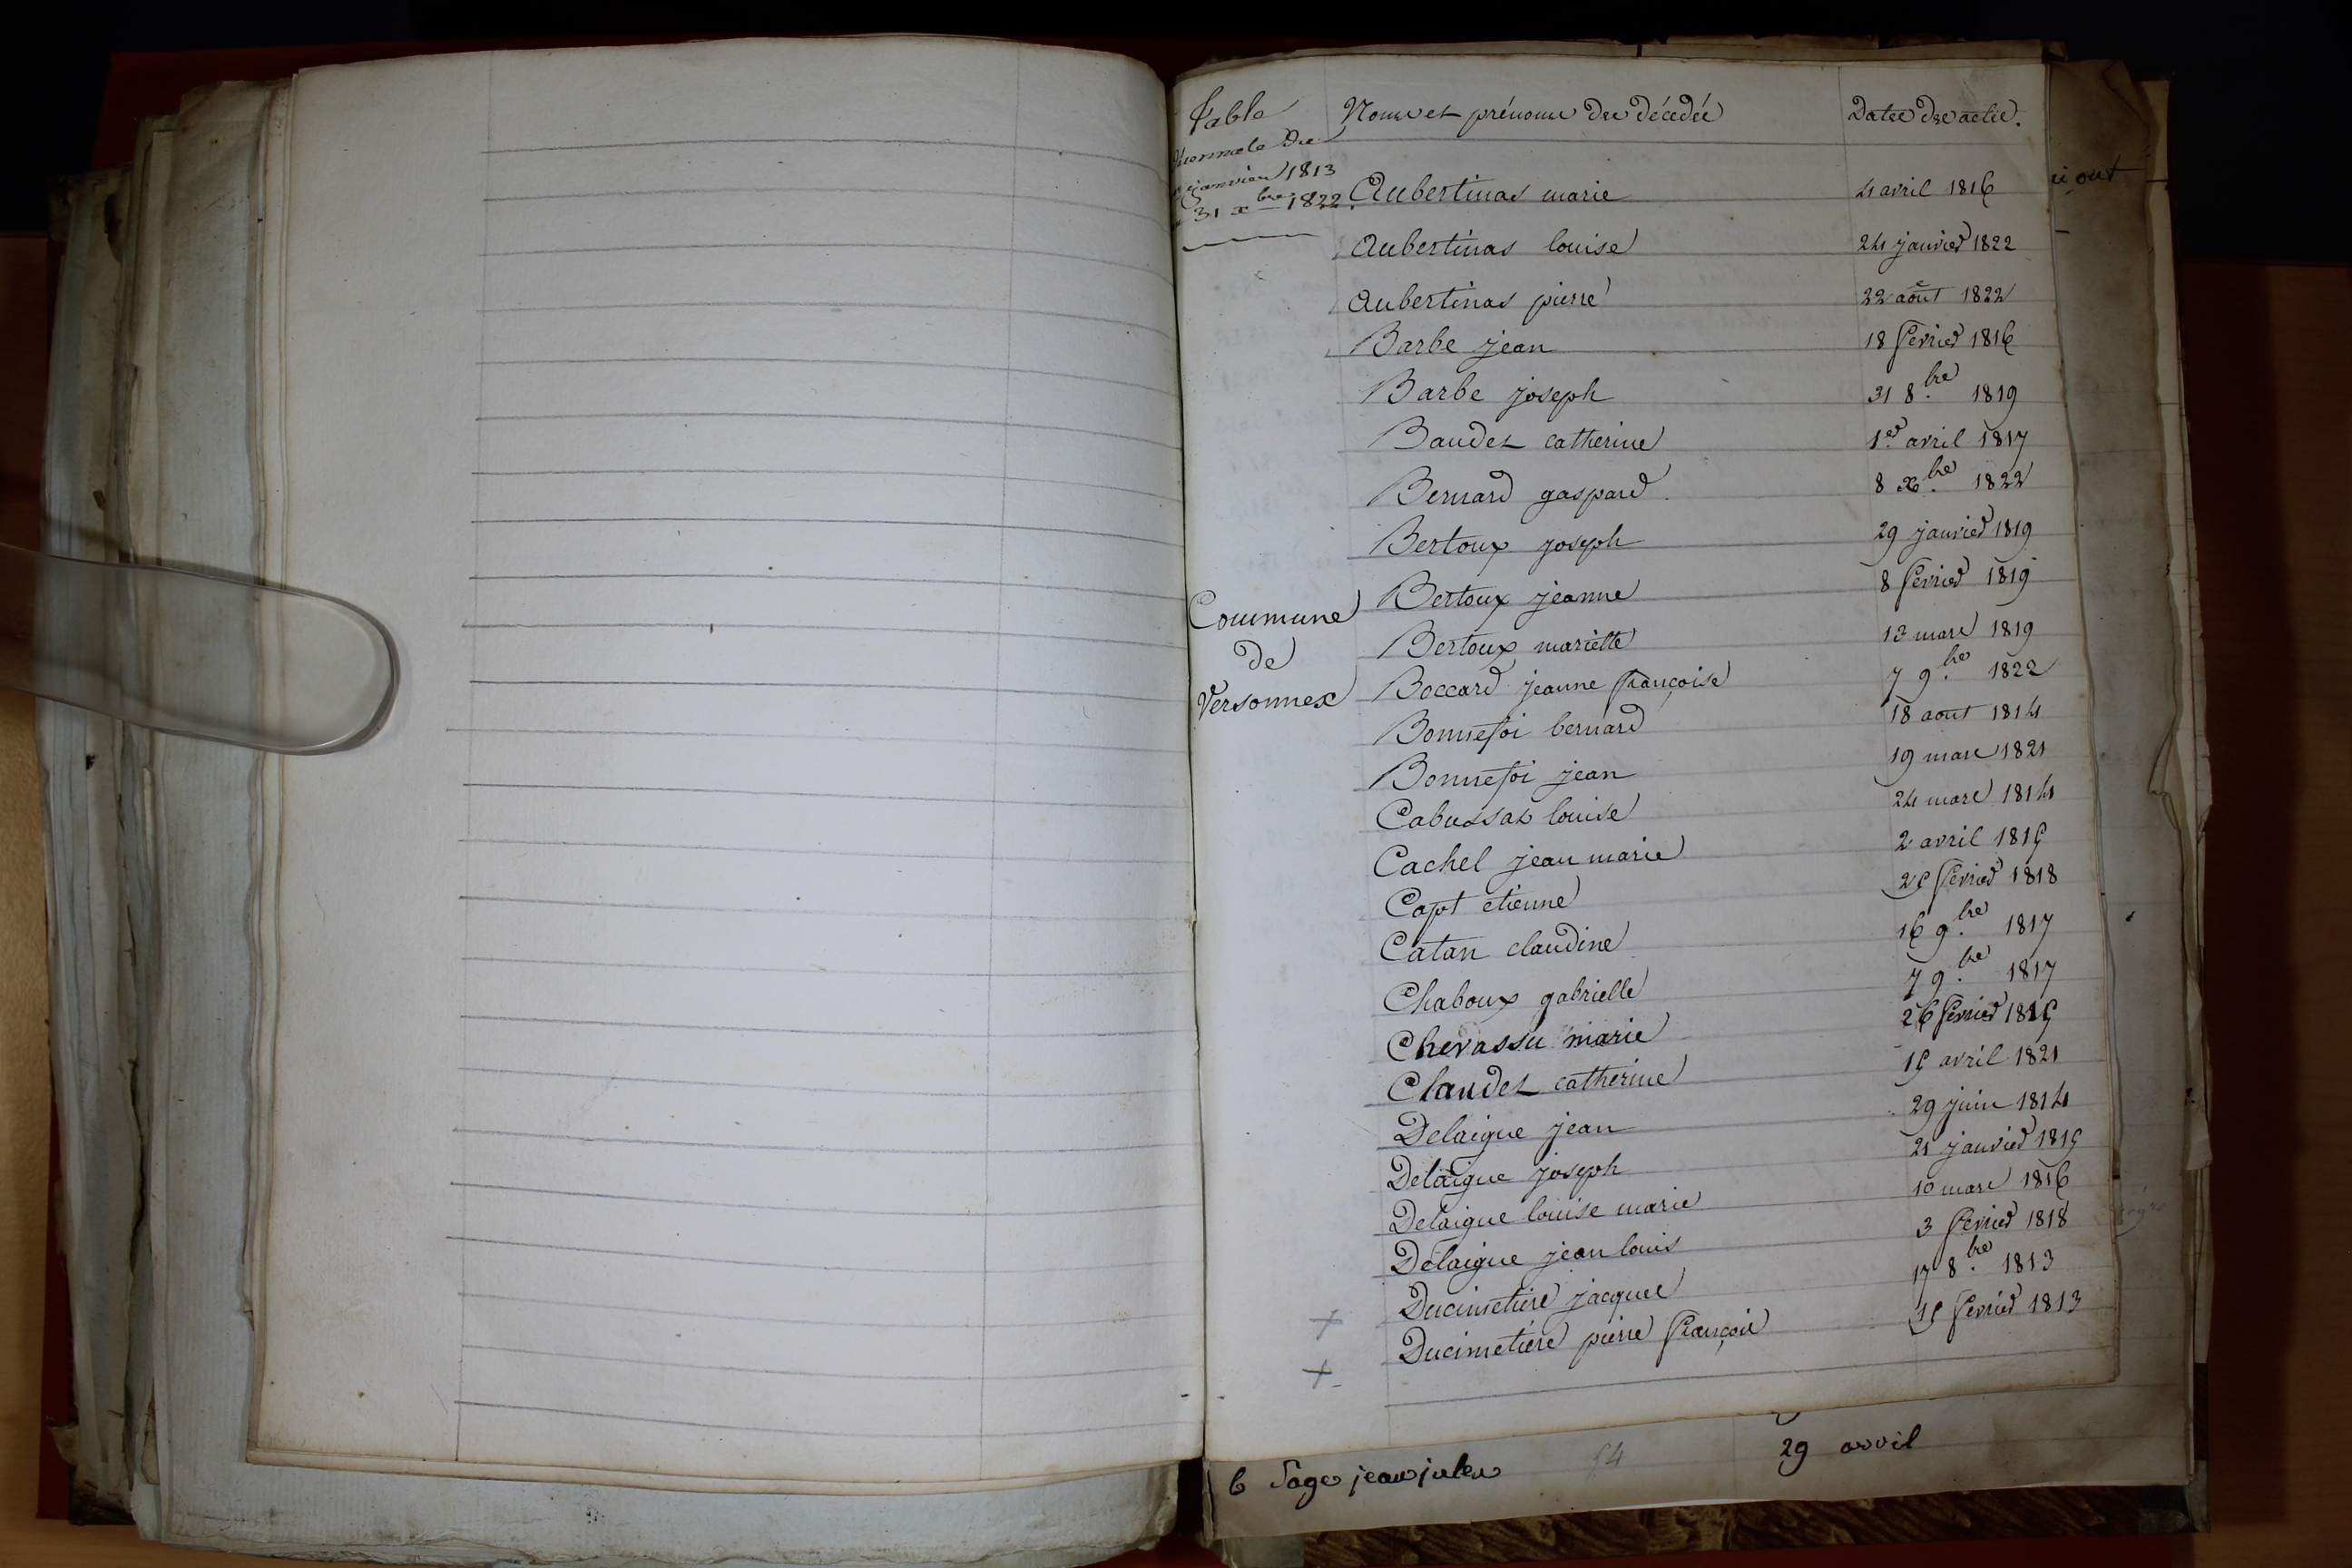 Table
du
janvier 1813
31 xbre 1822.
Commune
de
Versonnex
Noms et prénoms des décédés Dates des actes.
Aubertinas marie 4 avril 1816
Aubertinas louise 24 janvier 1822
Aubertinas pierre 22 août 1822
Barbe jean 18 fevrier 1816
Barbe joseph 31 8.bre 1819
Baudet catherine 1er avril 1817
Bernard gaspard. 8 xbre 1822
Bertoux joseph 29 janvier 1819
Bertoux jeanne 8 fevrier 1819
Bertoux mariette mars 1819
Boccard jeanne françoise 7 9.bre 1822
Bonnefoi bernard 18 aout 1814
Bonnefoi jean 19 mars 1821
Cabussat louise 24 mars 1814
Cachel jean marie 2 avril 1815
Capt etienne 25 fevrier 1818
Catan claudine 16 9.bre 1817
Chaboux gabrielle 7 9.bre 1817
Chevassu marie 26 fevrier 1815
Claudet catherine 15 avril 1821
Delaigue jean 29 juin 1814
Delaigue joseph 21 janvier 1815
Delaigue louise marie 10 mars 1816
Delaigue jean louis 3 fevrier 1818
Ducimetière jacques 17 8.bre 1813
+ Ducimetière pierre françois 15 fevrier 1813
+
6 Sage jean jules 29 avril